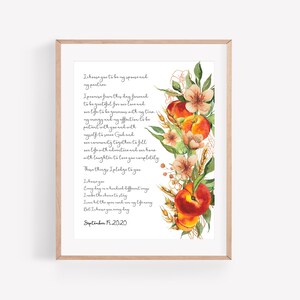 I choose you to be my spouse and
my partner.
I promise from this day forward
to be grateful for our love and
our life to be generous with my time
my energy and my affection to be
patient with you and with
myself to
our community together to fill
our life with adventure and our home
with laughter to love you completely.
These things I pledge to you.
I choose you
Every day in a hundred different ways
I make the choice to stay
and see my life away
But I choose you every day
September 19, 2020